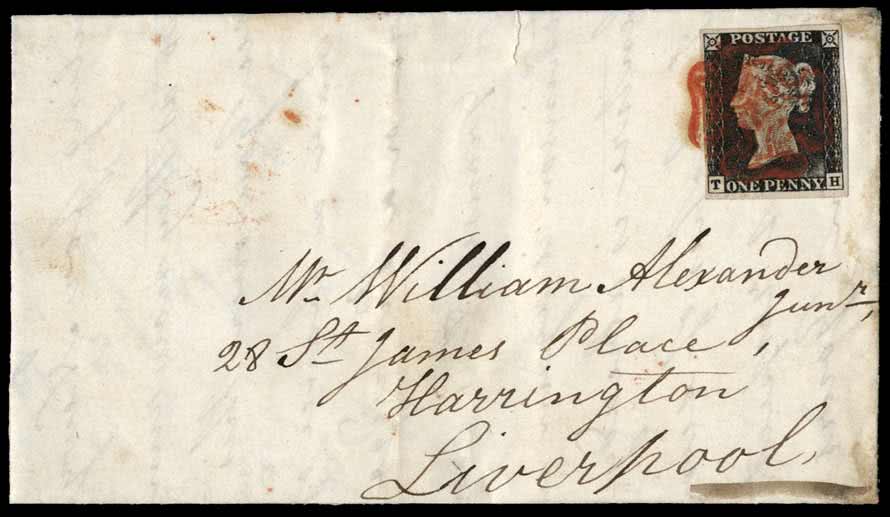 POSTAGE
T ONE PENNY H
Mr William Alexander
Junr,
28 St James Place,
Harrington
Liverpool,